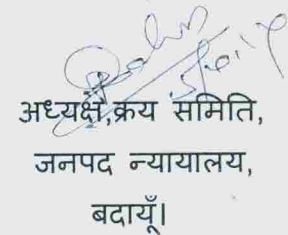 अध्यक्ष,क्रय समिति,
जनपद न्यायालय,
बदायूँ।